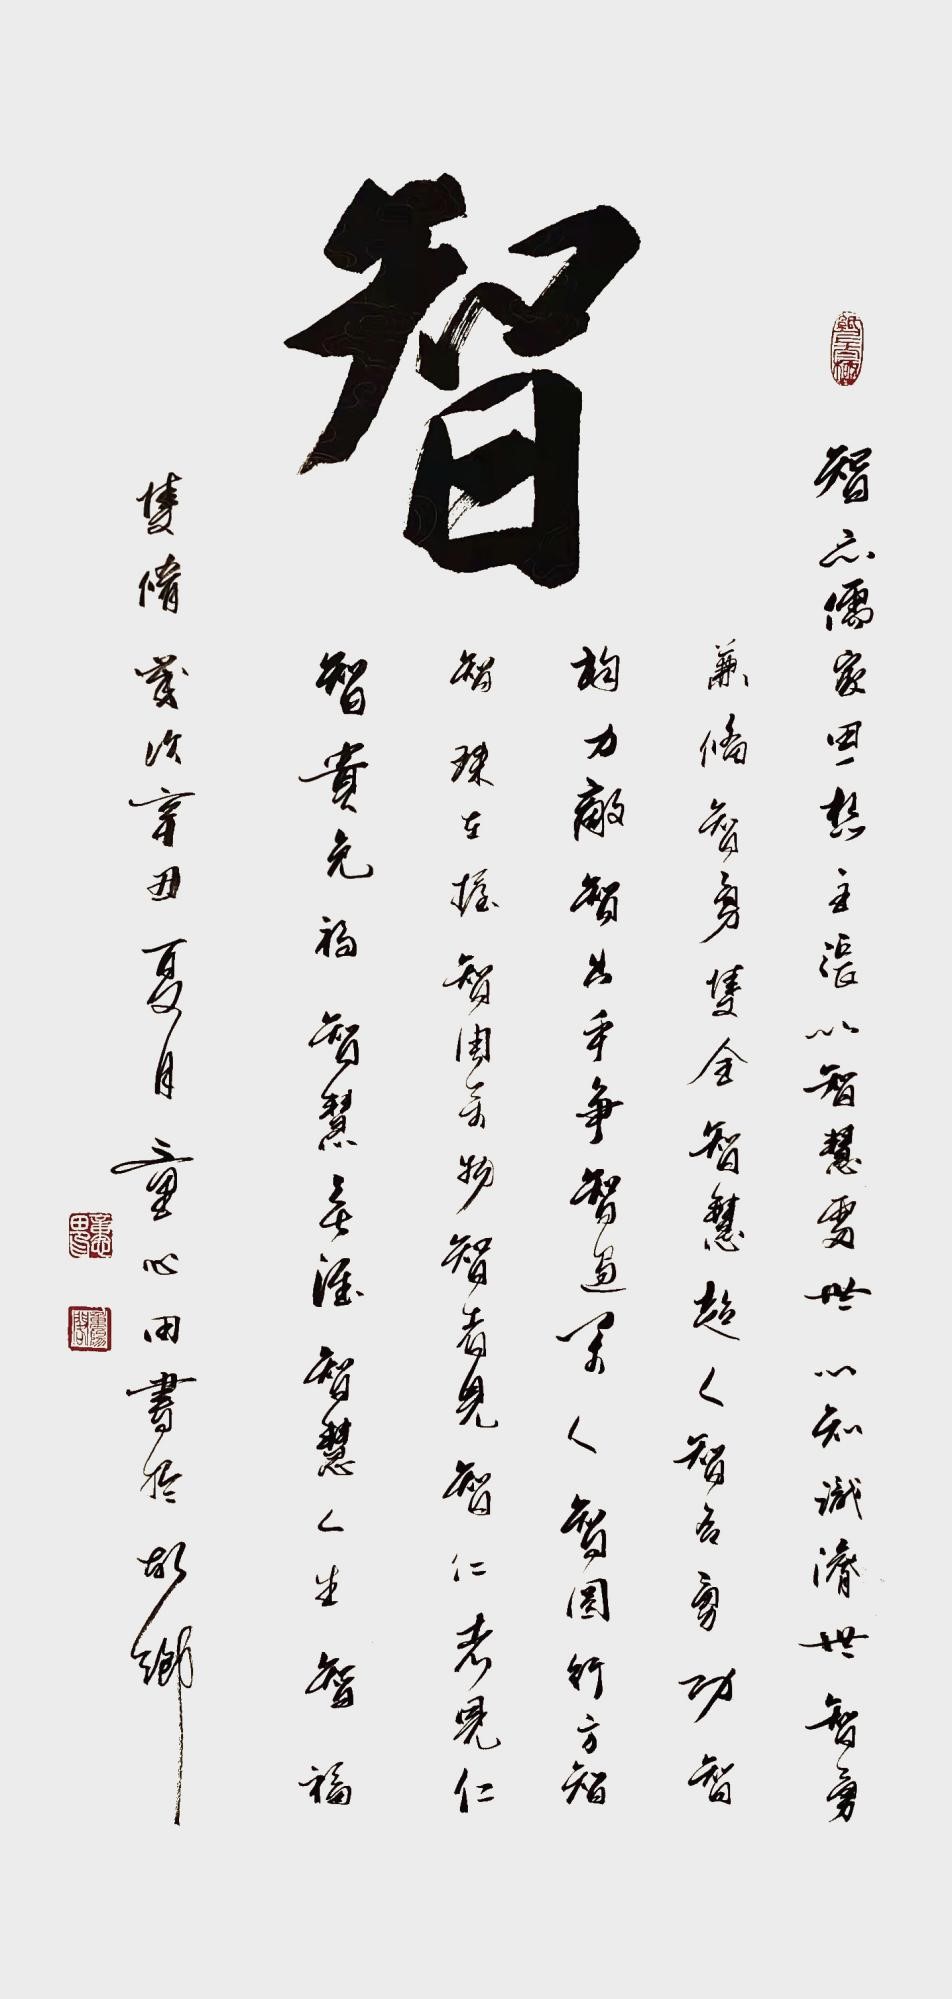 智
智亦儒家思想主張以智慧處世以知識濟世智勇
兼脩智勇雙全智慧超人智名勇功智
均力敵智出手爭智過萬人智圓行方智
智珠在握智周萬物智者見智仁者見仁
智貴免禍智慧無涯智慧人生智福
雙脩歲次辛丑夏月童心田書於故鄉